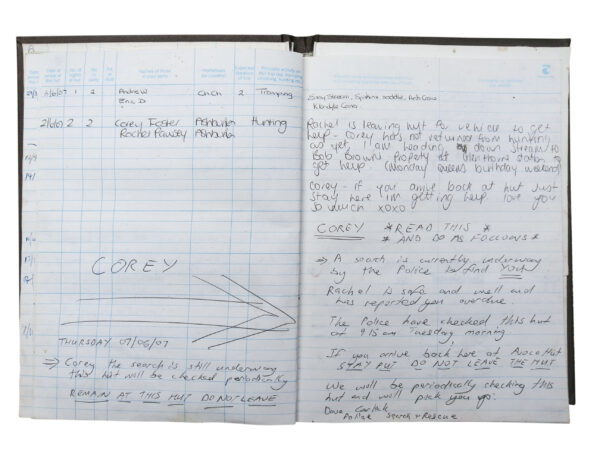 1 2 Andrew ChCh 2 Tramping
Eric D
2/6/07 2 2 Corey Foster Ashburton Hunting
Rachel Pawsey Ashburton
COREY
THURSDAY 07/06/07
⇒ Corey the search is still underway
this hut will be checked periodically
REMAIN AT THIS HUT DO NOT LEAVE
Rachel is leaving hut for vehicle to get
help - Corey has not returned from hunting
as yet, I am heading down stream to
Bob Browns property at Glenthorne station to
get help. (Monday queens birthday weekend)
Corey - if you arrive back at hut just
stay here im getting help love you
so much xoxo
COREY * READ THIS *
* AND DO AS FOLLOWS *
⇒ A search is currently underway
by the Police to find YOU!
Rachel is safe and well and
has reported you overdue.
The Police have checked this hut
at 915am Tuesday morning.
If you arrive back here at Avoca Hut
STAY PUT DO NOT LEAVE THE HUT
We will be periodically checking this
hut and will pick you up.
Dave
Police Search & Rescue